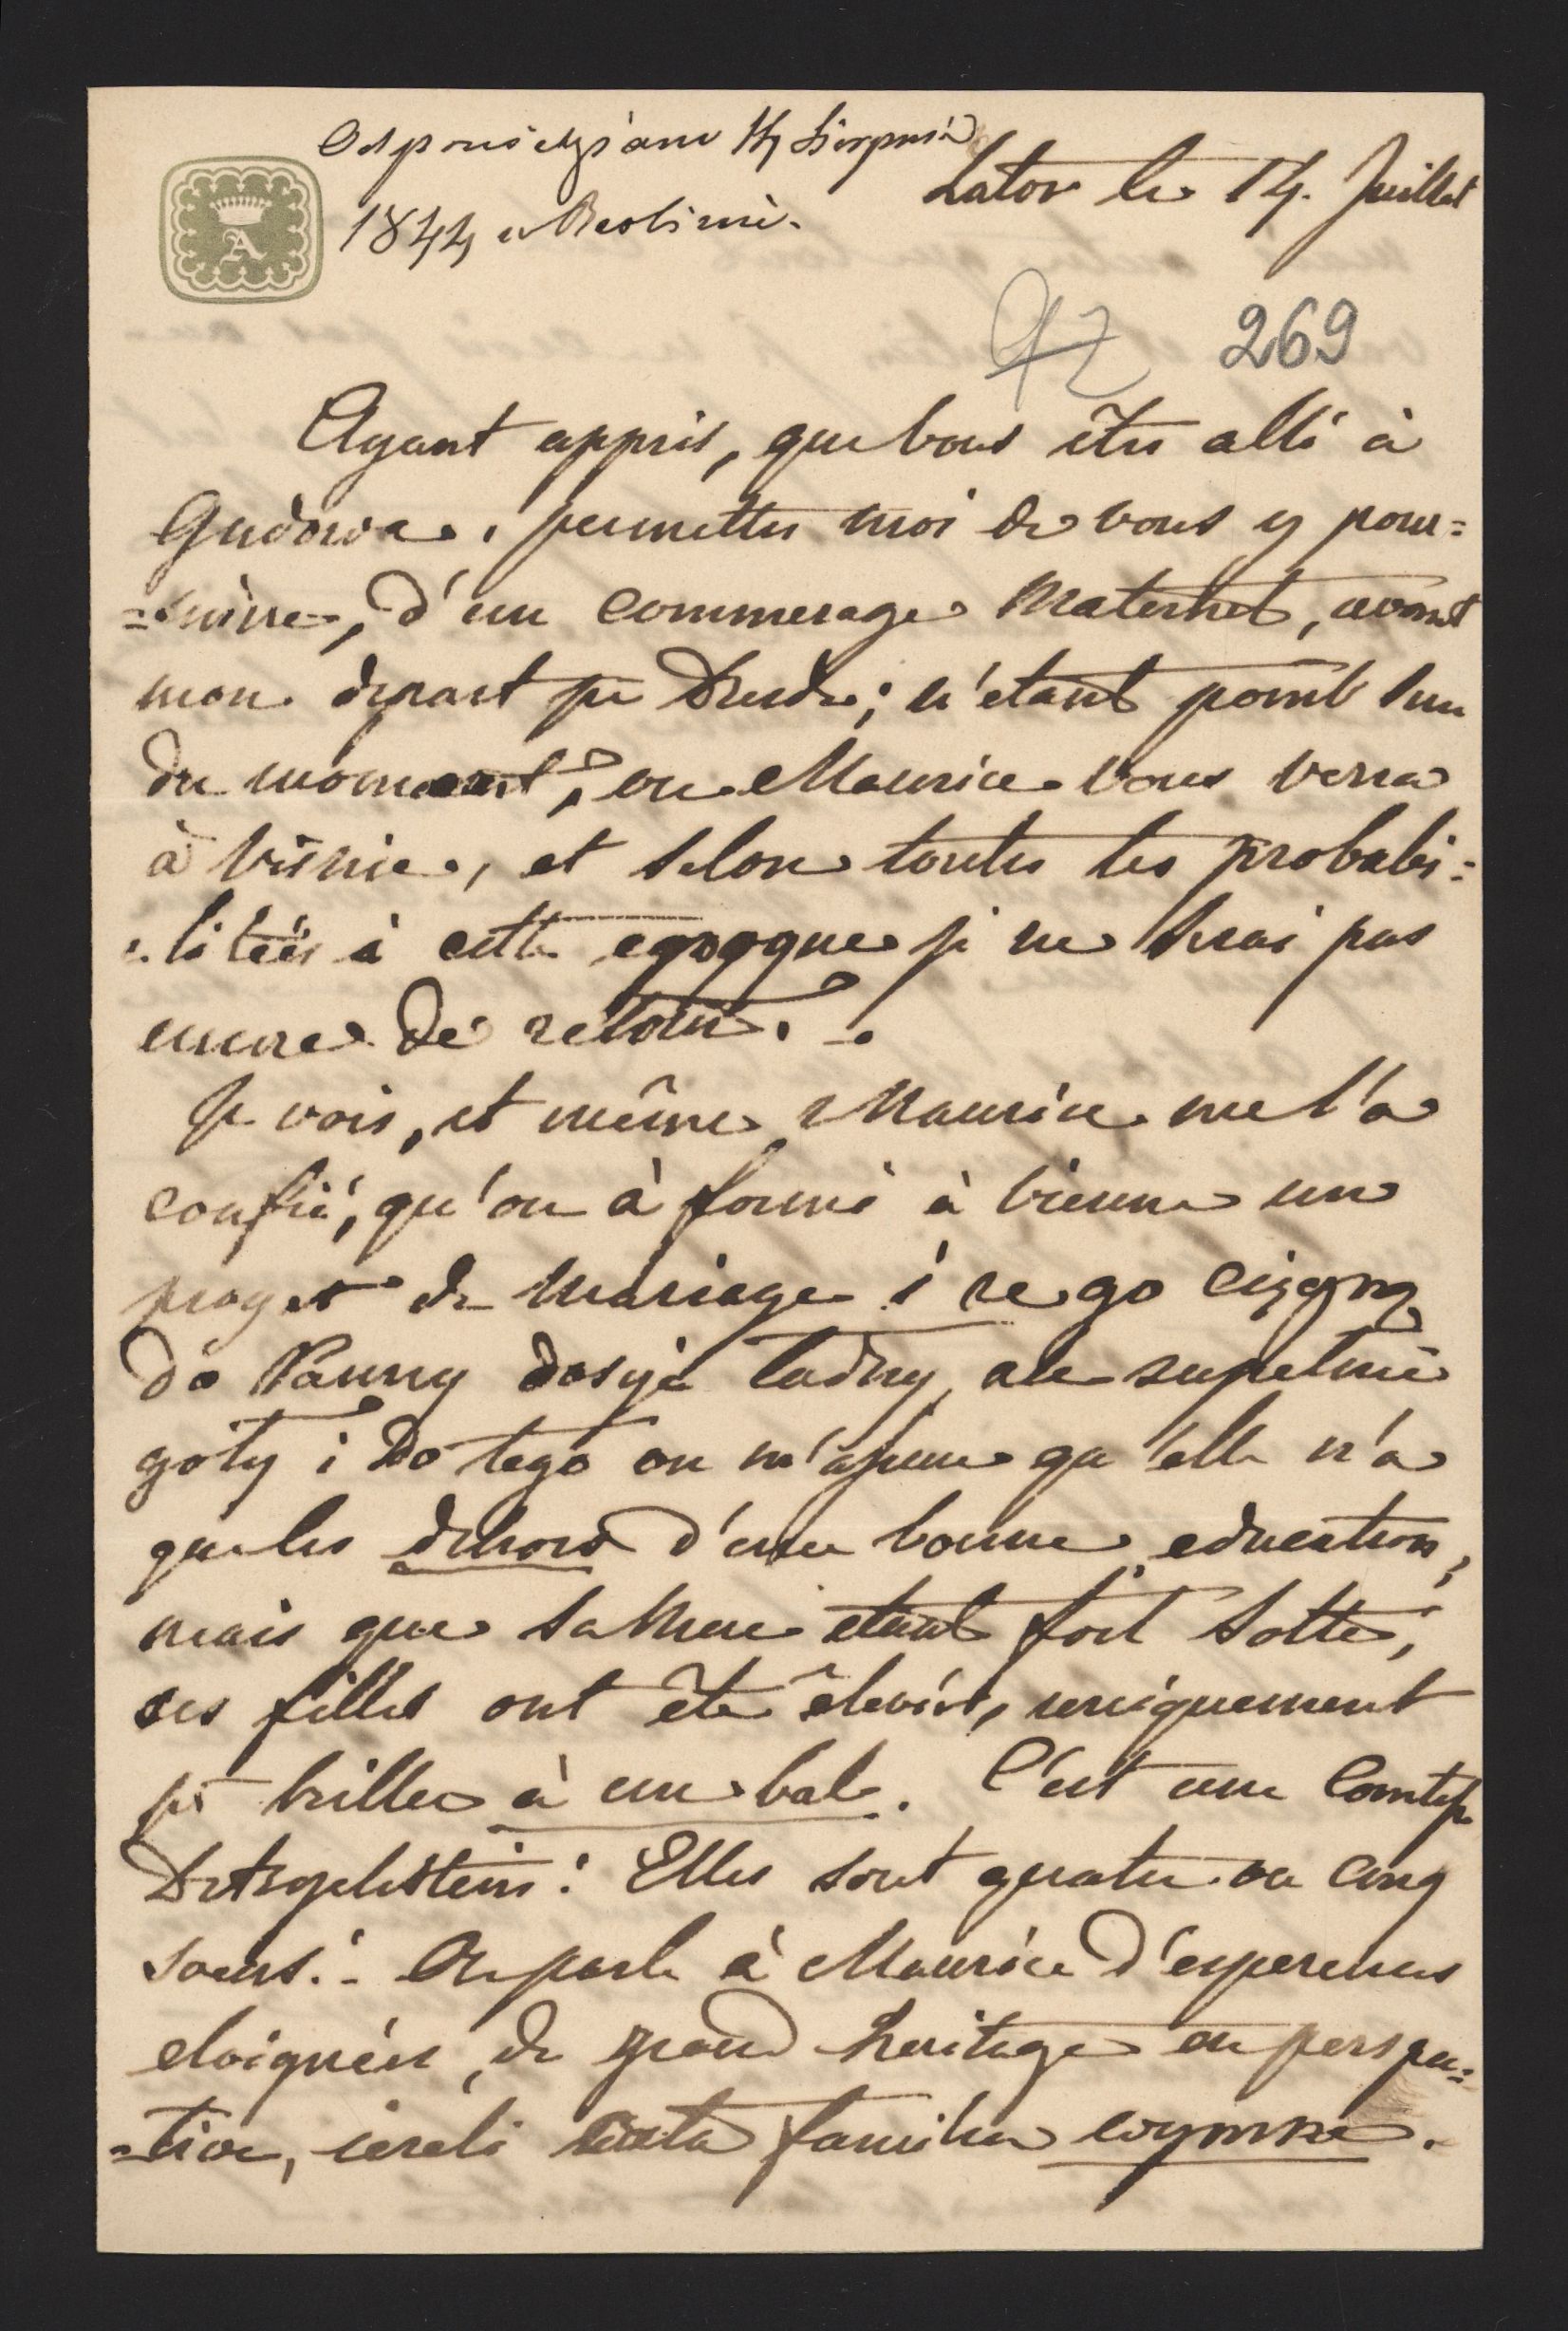 Odpowiedziane 14 Sierpnia
1844 w Berlinie.
Lator le 14. Juillet
A
97 269
Ayant appris, que vous êtes allé à
Gudowa, permettes moi de vous y pour=
=suivre, d'un commerage maternel, avant
mon depart pr Dresde; n'etant point sur
du moment, ou Maurice vous verra
à Visnie, et selon toutes les probabi=
=litées à cette epoque je ne serai pas
encore de retour.
Je vois, et même Maurice me l'a
confié, qu'on à formé à Vienne un
proget de mariage i ze go ciągną
do Panny dosyć ładny, ale zupełnie
goły i do tego on m'assure qu'elle n'a
que les dehors d'une bonne education,
mais que sa Mere etant fort sotte,
ses filles ont été élevées, uniquement
pr briller à un bal. C'est une Comtesse
Elles sont quatre ou cinq
soeurs. On parle à Maurice d'esperences
eloignées, de grand heritage en perspec=
=tive, jezeli familia wymrze.